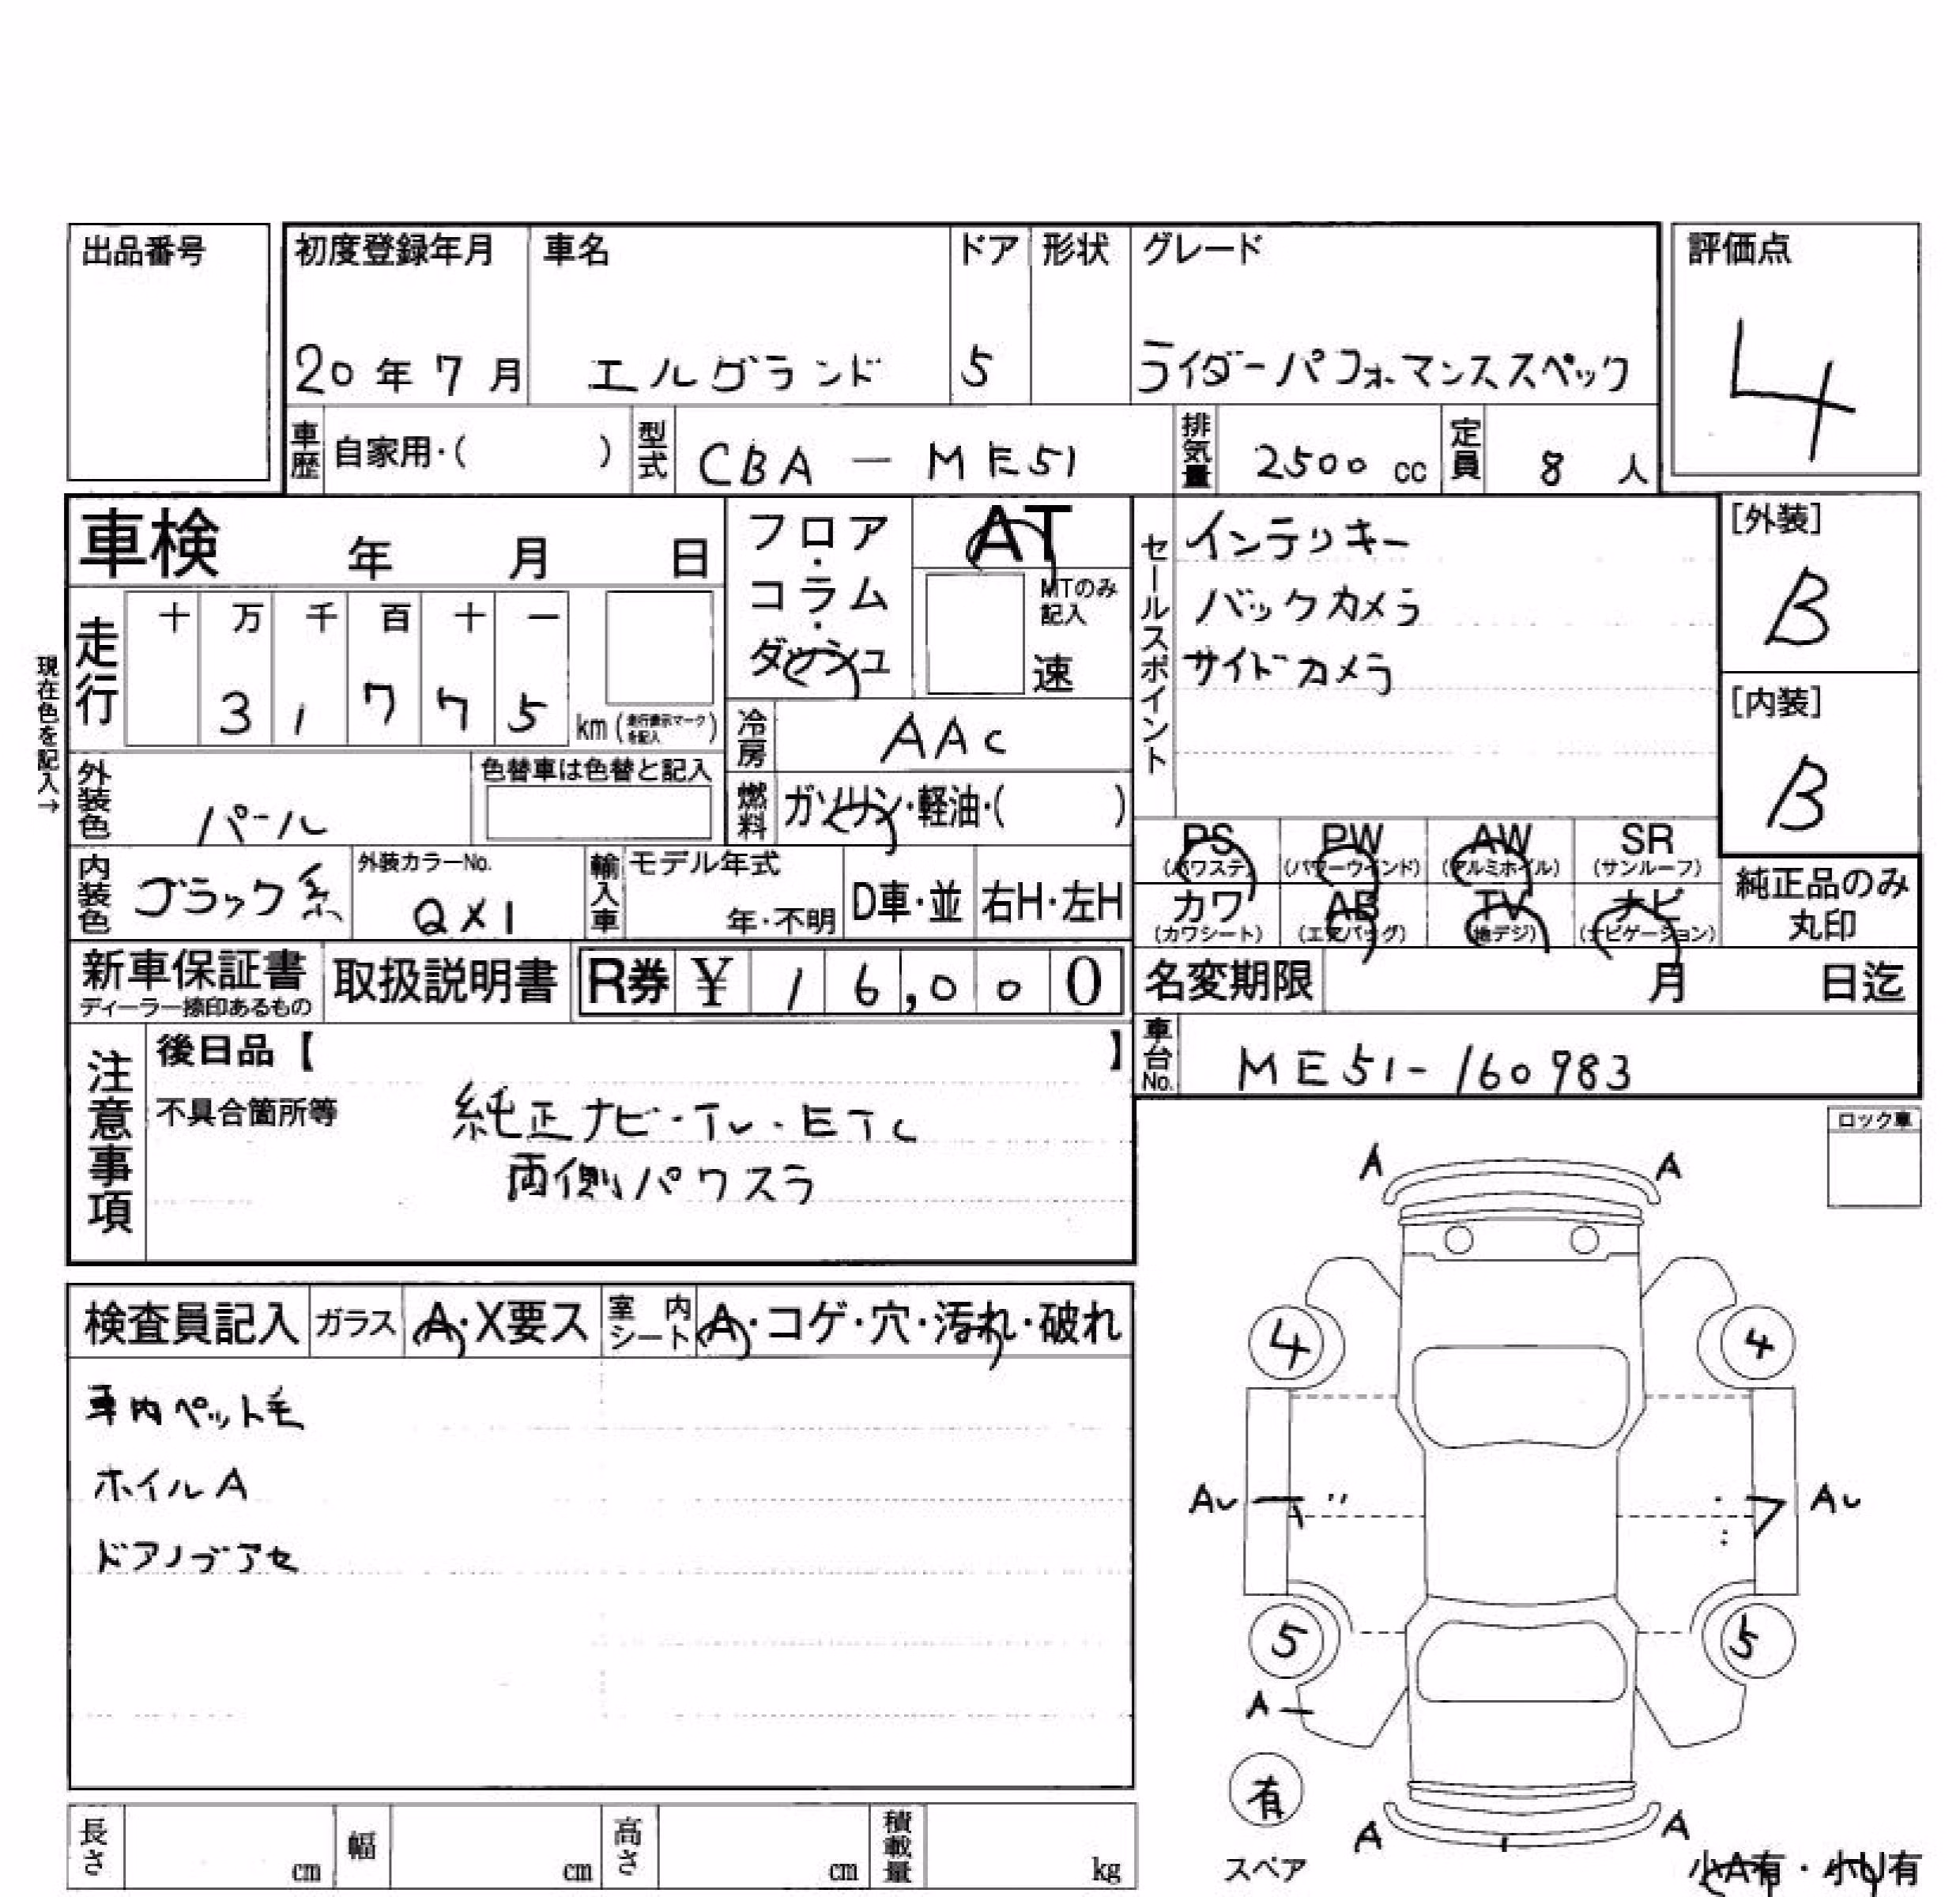 出品番号
初度登録年月
20年7月
車名
エルグランド
ドア
5
形状
グレード
ライダーパフォーマンススペック
評価点
4
車歴
自家用・( )
型式
CBA - ME51
排気量
2500 cc
定員
8 人
車検 年 月 日
フロア・コラム・ダッシュ
AT
MTのみ記入
速
セールスポイント
インテリキー
バックカメラ
サイドカメラ
[外装]
B
[内装]
B
現在色を記入→
走行
十 万 千 百 十 一
3 1 7 7 5
km (走行表示マークを記入)
冷房
AAC
燃料
ガソリン・軽油・( )
外装色
パール
色替車は色替と記入
内装色
ブラック系
外装カラーNo.
QX1
輸入車
モデル年式
年・不明
D車・並
右H・左H
PS (パワステ)
PW (パワーウインド)
AW (アルミホイル)
SR (サンルーフ)
カワ (カワシート)
AB (エアバッグ)
TV (地デジ)
ナビ (ナビゲーション)
純正品のみ丸印
新車保証書
ディーラー捺印あるもの
取扱説明書
R券 ¥ 16,000
名変期限 月 日迄
車台No.
ME51-160983
注意事項
後日品【 】
不具合箇所等
純正ナビ・TV・ETC
両側パワスラ
ロック車
検査員記入
ガラス
A・X要ス
室内シート
A・コゲ・穴・汚れ・破れ
車内ペット毛
ホイルA
ドアノブアセ
A A
4 4
AU AU
5 5
A
有
スペア
A A
小A有・小U有
長さ cm
幅 cm
高さ cm
積載量 kg